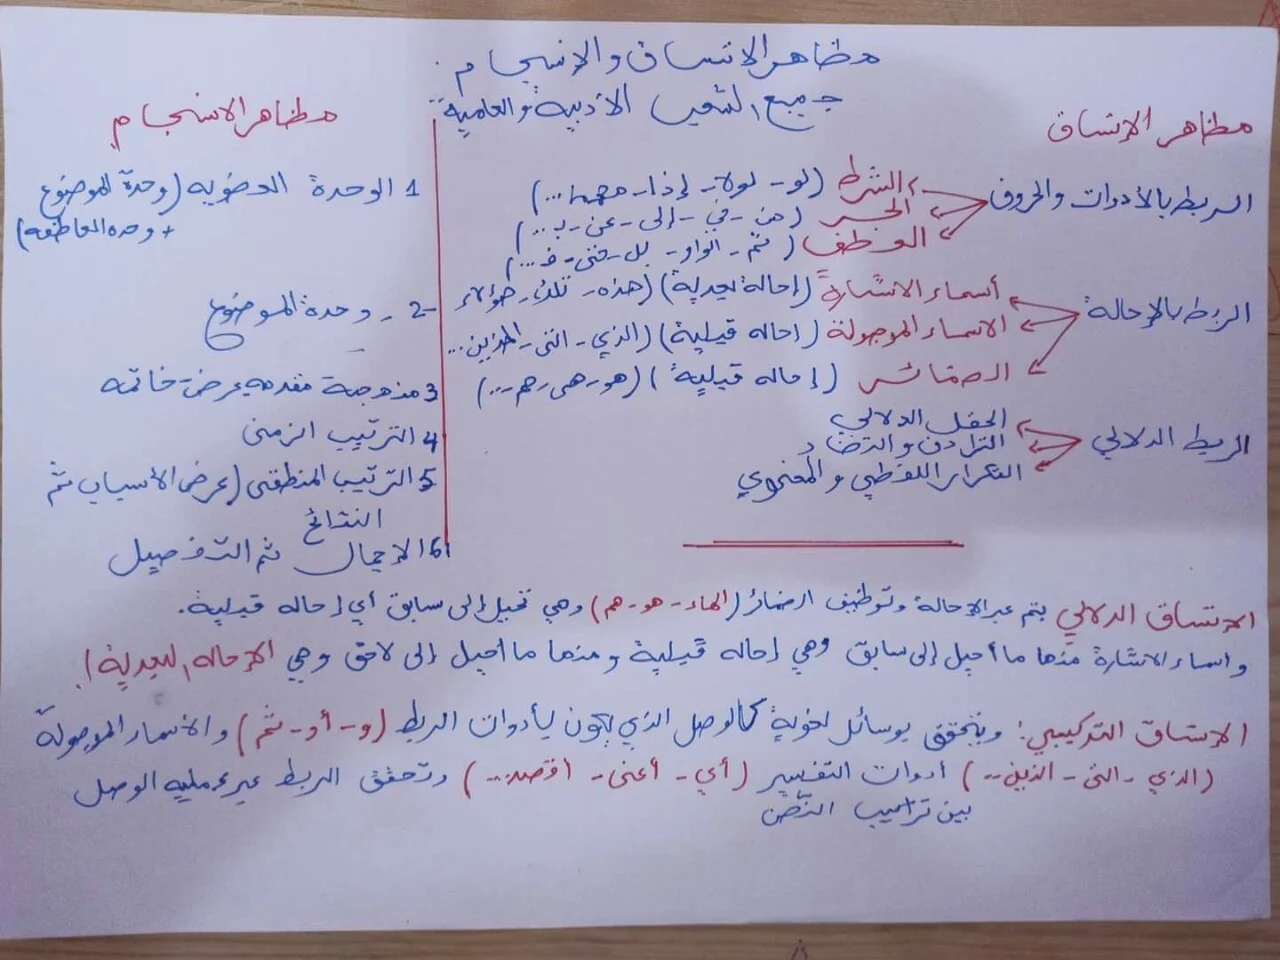 مظاهر الاتساق والإنسجام
جميع الشعب الأدبية والعلمية
مظاهر الإتساق
الربط بالأدوات والحروف
الشرط (لو - لولا - إذا - مهما...)
الجر (من - في - إلى - عن - ب...)
العطف (ثم - الواو - بل - حتى - ف...)
الربط بالإحالة
أسماء الاشارة (إحالة بعدية) (هذه - تلك - هؤلاء
الاسماء الموصولة (إحاله قبلية) (الذي - التي - الذين...
الضمائر (إحاله قبلية) (هو - هي - هم -...)
الربط الدلالي
الحقل الدلالي
الترادف والتضاد
التكرار اللفظي والمعنوي
مظاهر الانسجام
1 الوحدة العضويه (وحدة الموضوع
+ وحده العاطفه)
2 - وحدة الموضوع
3 منهجية مقدمه عرض خاتمه
4 الترتيب الزمني
5 الترتيب المنطقي (عرض الأسباب ثم
النتائج
6 الإجمال ثم التفصيل
الاتساق الدلالي يتم عبر الإحالة وتوظيف الضمائر (الهاء - هو - هم) وهي تحيل إلى سابق أي إحاله قبلية.
واسماء الاشارة منها ما أحيل إلى سابق وهي إحاله قبلية ومنها ما أحيل إلى لاحق وهي الإحاله البعدية).
الاتساق التركيبي: ويتحقق بوسائل لغوية كالوصل الذي يكون بأدوات الربط (و - أو - ثم) والأسماء الموصولة
(الذي - التي - الذين...) أدوات التفسير (أي - أعني - اقصد...) وتحقق الربط عبر عمليه الوصل
بين تراكيب النص